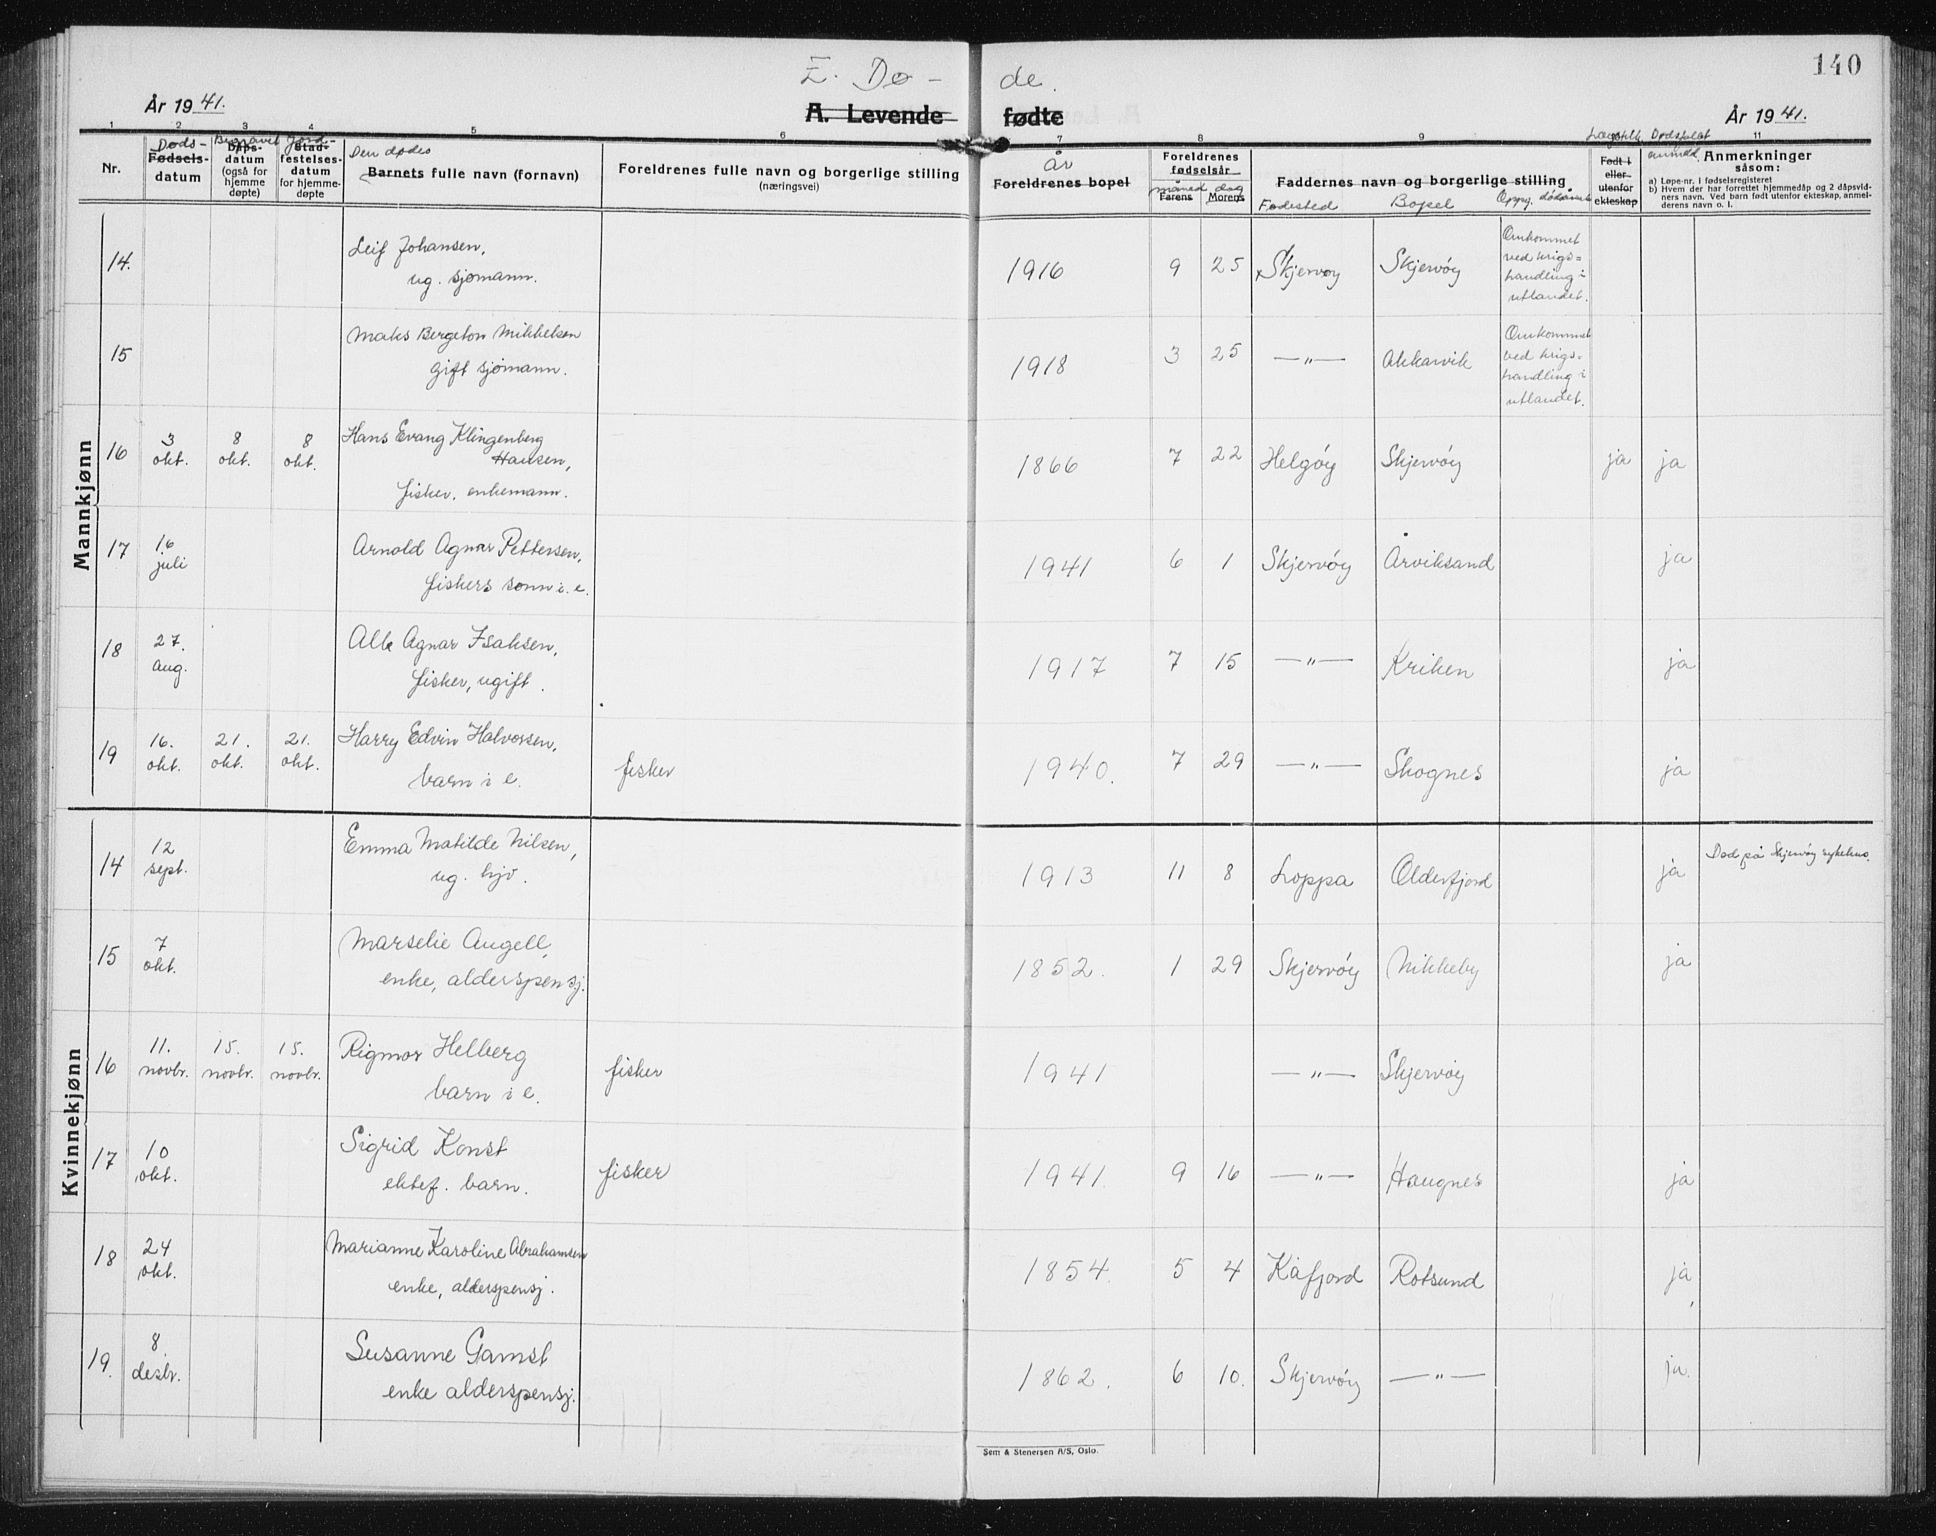 140
E. Dø- de.
År 1941.
A. Levende fødte
År 1941.
1 2 3 4 5 6 7 8 9 11
Nr.
Døds-
Fødsels-
datum
Begravet
Dåps-
datum
(også for
hjemme
døpte)
Jord-
Stad-
festelses-
datum
for hjemme-
døpte
Den dødes
Barnets fulle navn (fornavn)
Foreldrenes fulle navn og borgerlige stilling
(næringsvei)
år
Foreldrenes bopel
Foreldrenes
fødselsår
måned dag
Farens Morens
Faddernes navn og borgerlige stilling
Fødested Bopel Oppg.
Født i
eller
utenfor
ekteskap
Dødsfallet
anmeld.
Anmerkninger
såsom:
a) Løpe-nr. i fødselsregisteret
b) Hvem der har forrettet hjemmedåp og 2 dåpsvid-
ners navn. Ved barn født utenfor ekteskap, anmel-
derens navn o. l.
Mannkjønn
14. Leif Johansen, 1916 9 25 Skjervøy Skjervøy Omkommet
ug. sjømann. ved krigs=
handling i
utlandet.
15 Maks Bergeton Mikkelsen 1918 3 25 —"— Akkarvik Omkommet
gift sjømann. ved krigs=
handling i
utlandet.
16 3 okt. 8 okt. 8 okt. Hans Evang Klingenberg
Hansen, 1866 7 22 Helgøy Skjervøy ja ja
fisker, enkemann.
17 16 juli Arnold Agnar Pettersen, 1941 6 1 Skjervøy Årviksand ja
fiskers sønn i. e.
18 27. aug. Alb Agnar Isaksen, 1917 7 15 —"— Kriken ja
fisker, ugift.
19 16. okt. 21. okt. 21. okt. Harry Edvin Halvorsen, fisker 1940. 7 29 —"— Skognes ja
barn i e.
Kvinnekjønn
14 12 sept. Emma Matilde Nilsen, 1913 11 8 Loppa Olderfjord ja Død på Skjervøy sykehus.
ug. hjv.
15 7 okt. Marselie Angell, 1852. 1 29 Skjervøy Nikkeby ja
enke, alderspensj.
16 11. novbr. 15. novbr. 15. novbr. Rigmor Helberg fisker 1941 —"— Skjervøy
barn i e.
17 10 okt. Sigrid Konst fisker 1941. 9 16 —"— Haugnes ja
ektef. barn.
18 24 okt. Marianne Karoline Abrahamsen 1854. 5 4 Kåfjord Rotsund ja
enke, alderspensj.
19. 8. desbr. Susanne Gamst 1862. 6 10. Skjervøy —"— ja.
enke alderspensj.
Sem & Stenersen A/S, Oslo.